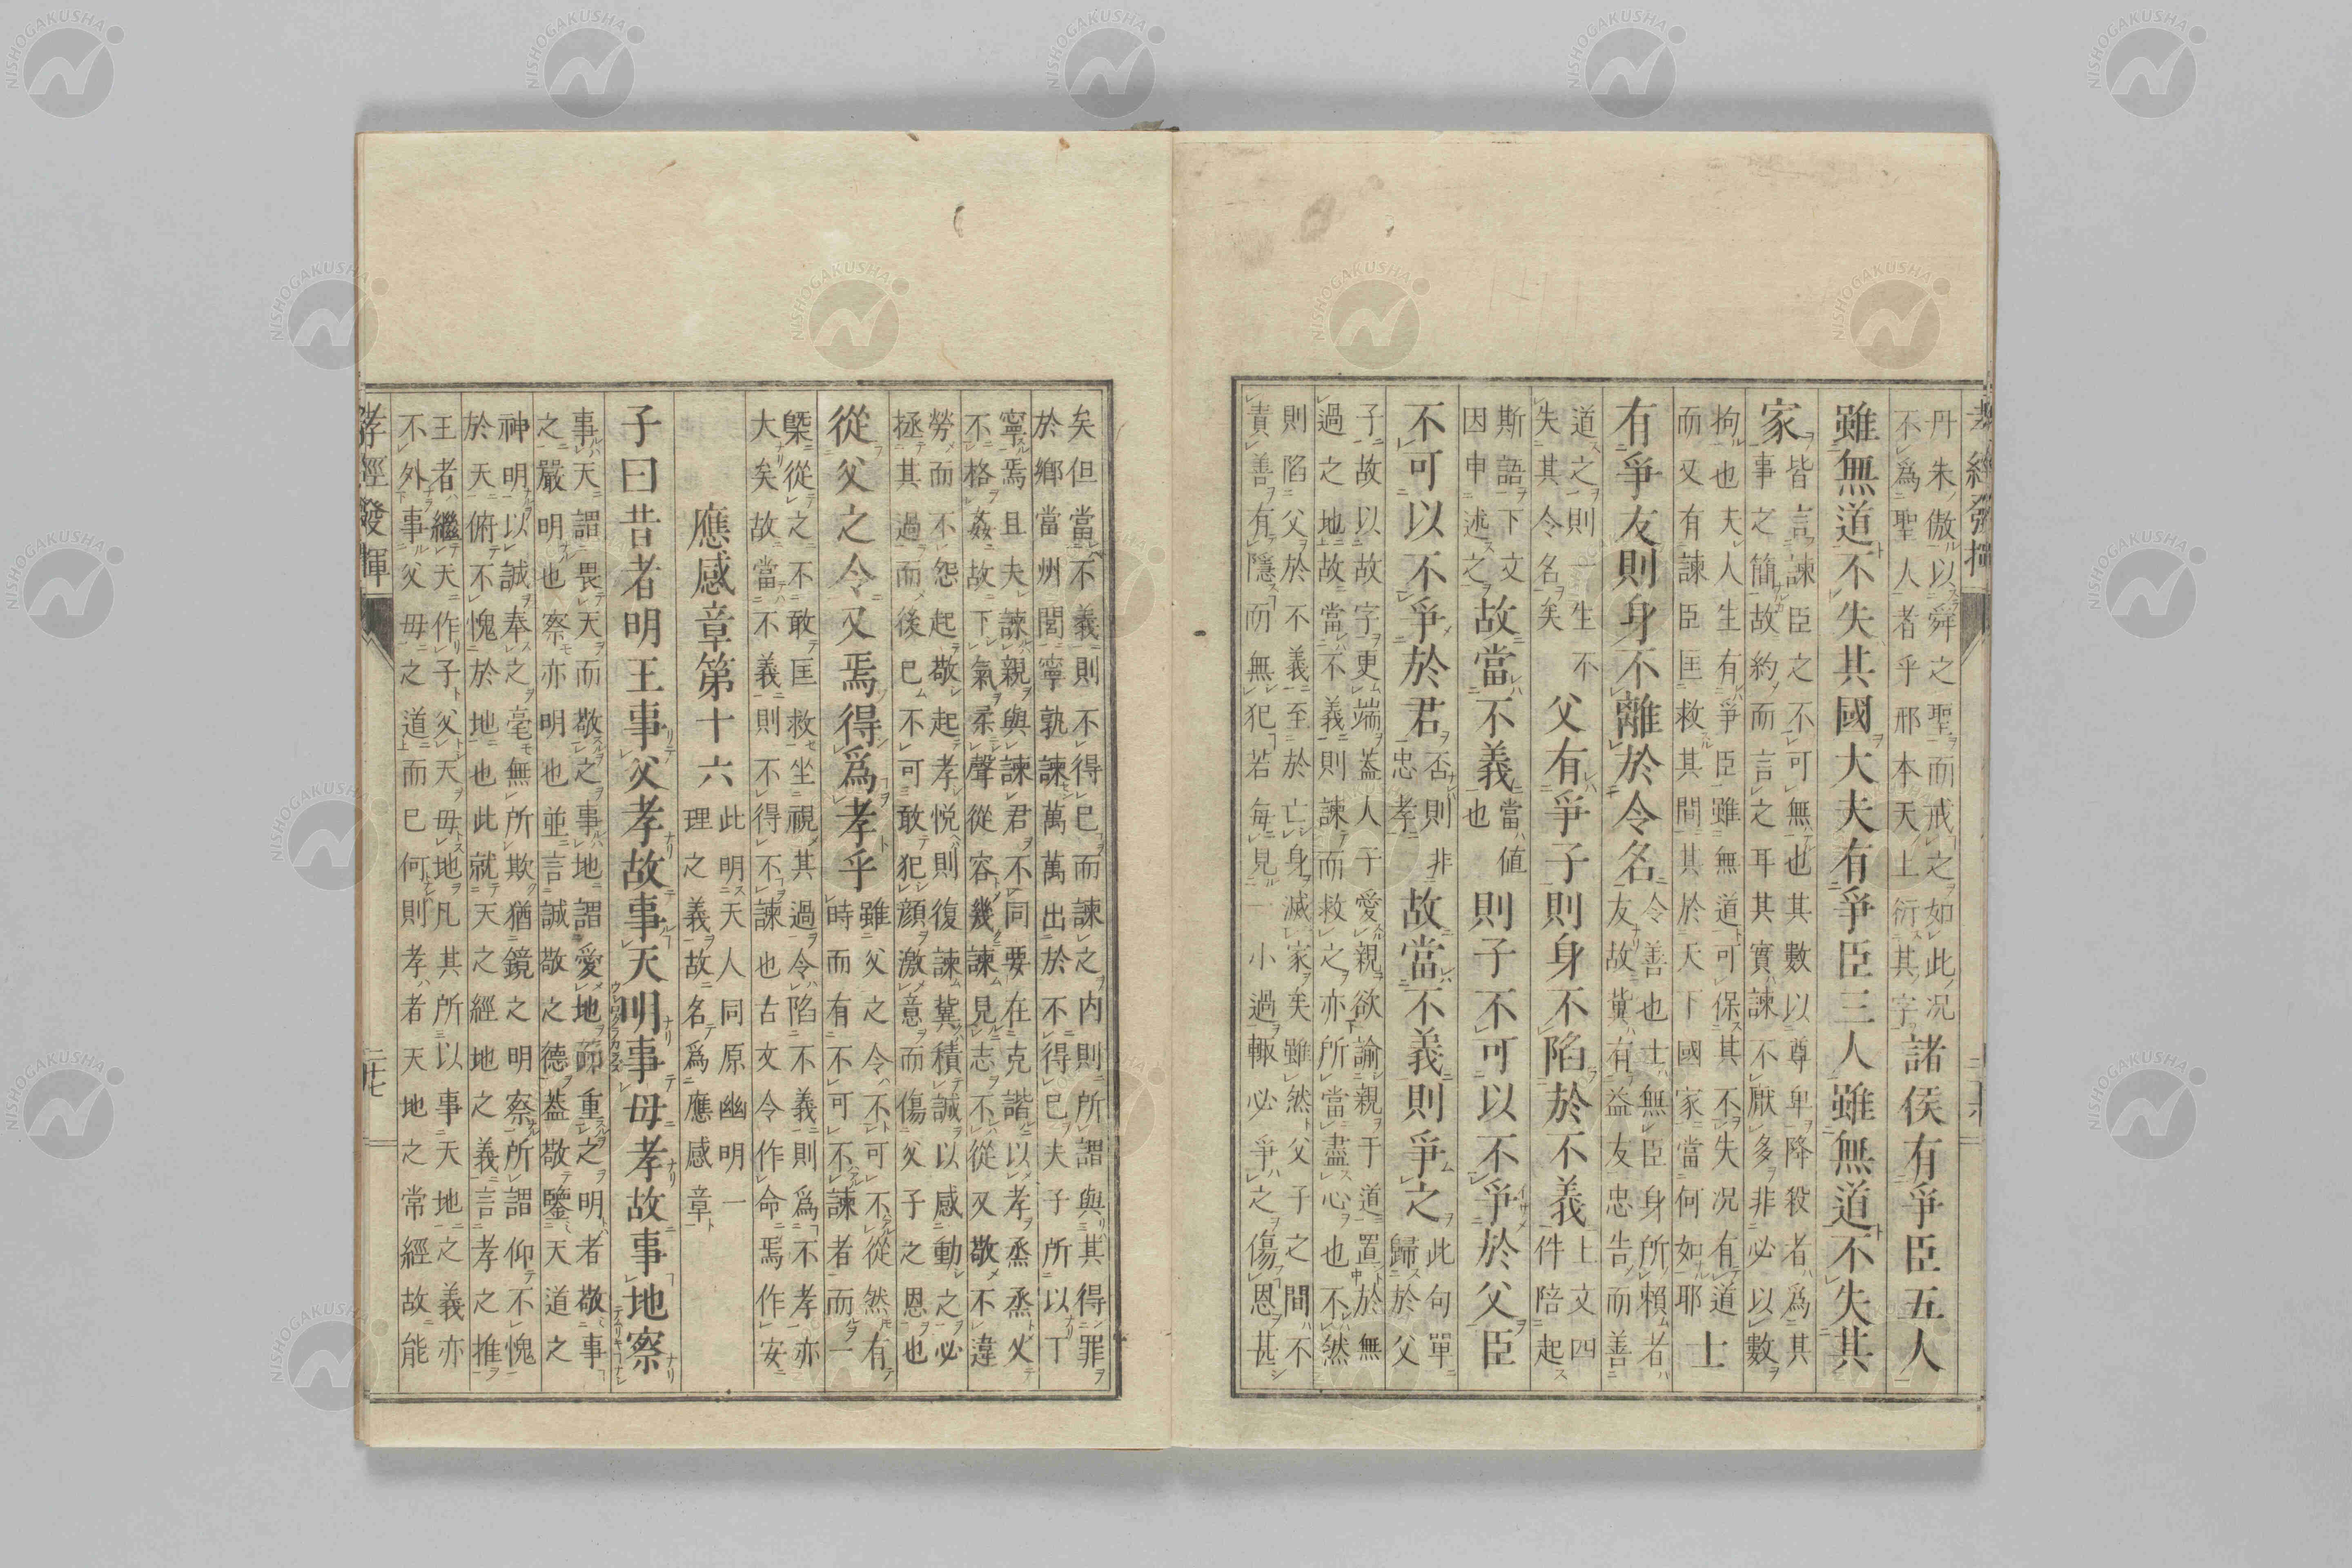 丹朱傲以舜之聖而戒之如此况
不爲聖人者乎邢本天上衍其字
諸侯有爭臣五人
雖無道不失其國大夫有爭臣三人雖無道不失其
家
皆言諫臣之不可無也其數以尊卑降殺者爲其
事之簡故約而言之耳其實諫不厭多非必以數
拘也夫人生有爭臣雖無道可保其不失况有道
而又有諫臣匡救其間其於天下國家當何如耶
士
有爭友則身不離於令名
令善也士無臣身所賴者
友故冀有益友忠告而善
道之則生不
失其令名矣
父有爭子則身不陷於不義
上文四
件陪起
斯語下文
因申述之
故當不義
當値
也
則子不可以不爭於父臣
不可以不爭於君
否則非
忠孝
故當不義則爭之
此句單
歸於父
子故以故字更端蓋人于愛親欲諭親于道置於無
過之地故當不義則諫而救之亦所當盡心也不然
則陷父於不義至於亡身滅家矣雖然父子之間不
責善有隱而無犯若每見一小過輙必爭之傷恩甚
矣但當不義則不得已而諫之内則所謂與其得罪
於鄉黨州閭寧孰諫萬萬出於不得已夫子所以丁
寧焉且夫諫親與諫君不同要在克諧以孝烝烝乂
不格姦故下氣柔聲從容幾諫見志不從又敬不違
勞而不怨起敬起孝悦則復諫冀積誠以感動之必
拯其過而後已不可敢犯顔激意而傷父子之恩也
從父之令又焉得爲孝乎
雖父之令不可不從然有
時而有不可不諫者而一
槩從之不敢匡救坐視其過令陷不義則爲不孝亦
大矣故當不義則不得不諫也古文令作命焉作安
應感章第十六
此明天人同原幽明一
理之義故名爲應感章
子曰昔者明王事父孝故事天明事母孝故事地察
事天謂畏天而敬之事地謂愛地而重之明者敬事
之嚴明也察亦明也並言誠敬之德蓋敬鑒天道之
神明以誠奉之毫無所欺猶鏡之明察所謂仰不愧
於天俯不愧於地也此就天之經地之義言孝之推
王者繼天作子父天母地凡其所以事天地之義亦
不外事父母之道而已何則孝者天地之常經故能
孝經發揮
二十七